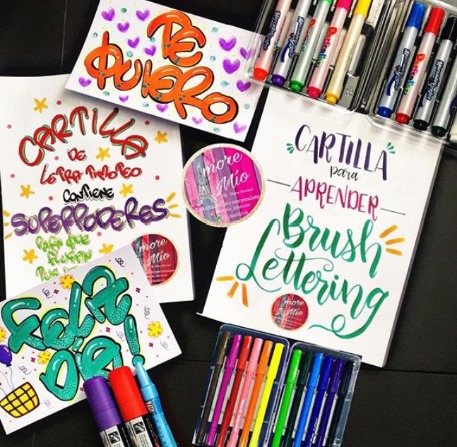 TE
QUIERO
CARTILLA
DE
LETRA TIMOTEO
CONTIENE
SUPERPODERES
PARA QUE
TUS
more
Mío
more
Mío
FELIZ
DÍA!
CARTILLA
para
APRENDER
Brush
Lettering
more
Mío